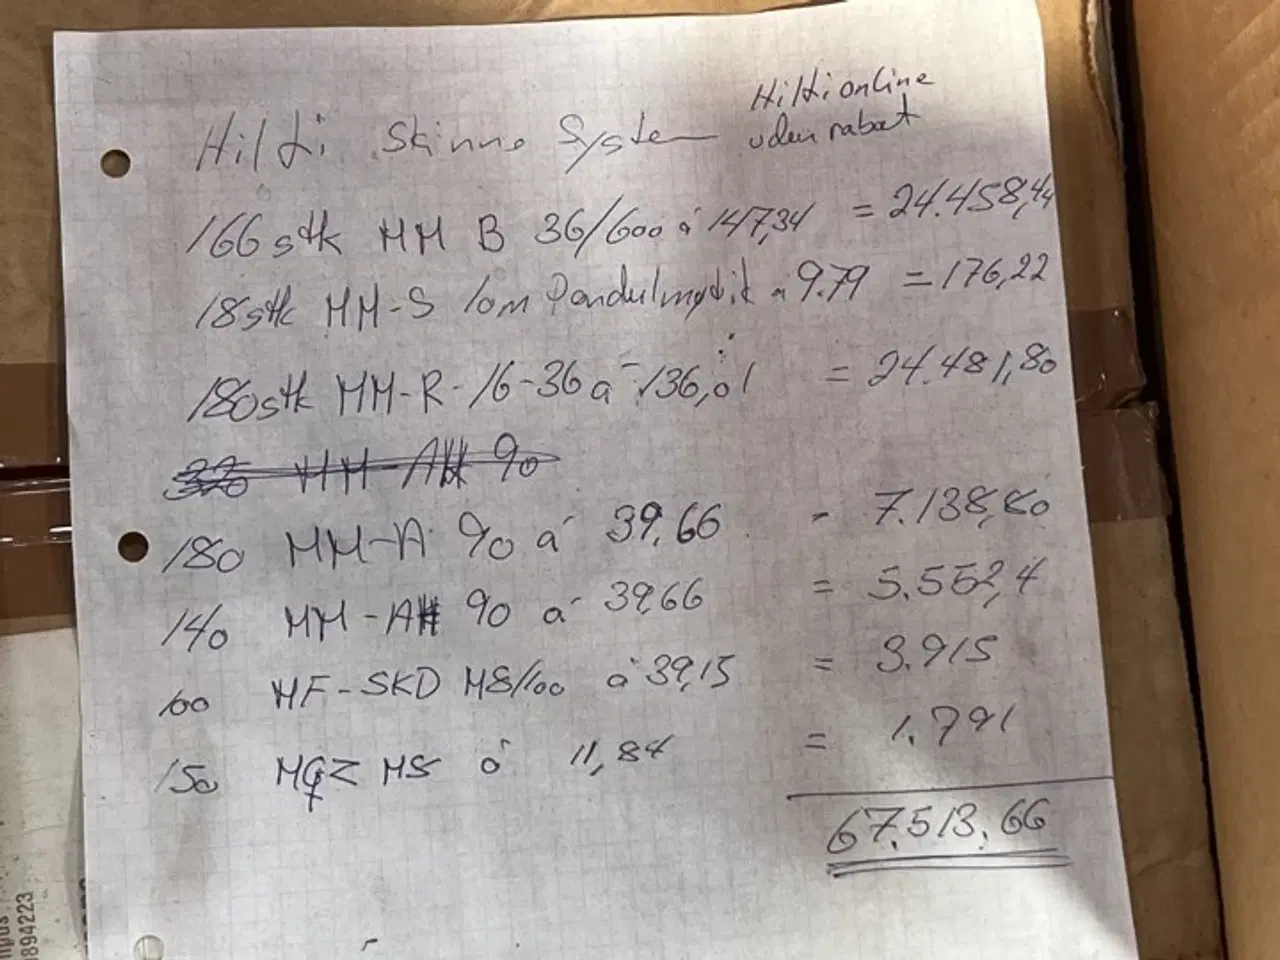 Hilti Skinne System
Hilti online
uden rabat
166 stk MM B 36/600 á 147,34 = 24.458,44
18 stk MM-S 10m á 9.79 = 176,22
180 stk MM-R-16-36 á 136,01 = 24.481,80
320 MM-AH 90
180 MM-A 90 á 39,66 = 7.138,80
140 MM-AH 90 á 39,66 = 5.552,4
100 MF-SKD M8/100 á 39,15 = 3.915
150 MQZ M8 á 11,84 = 1.791
67.513.66
894223